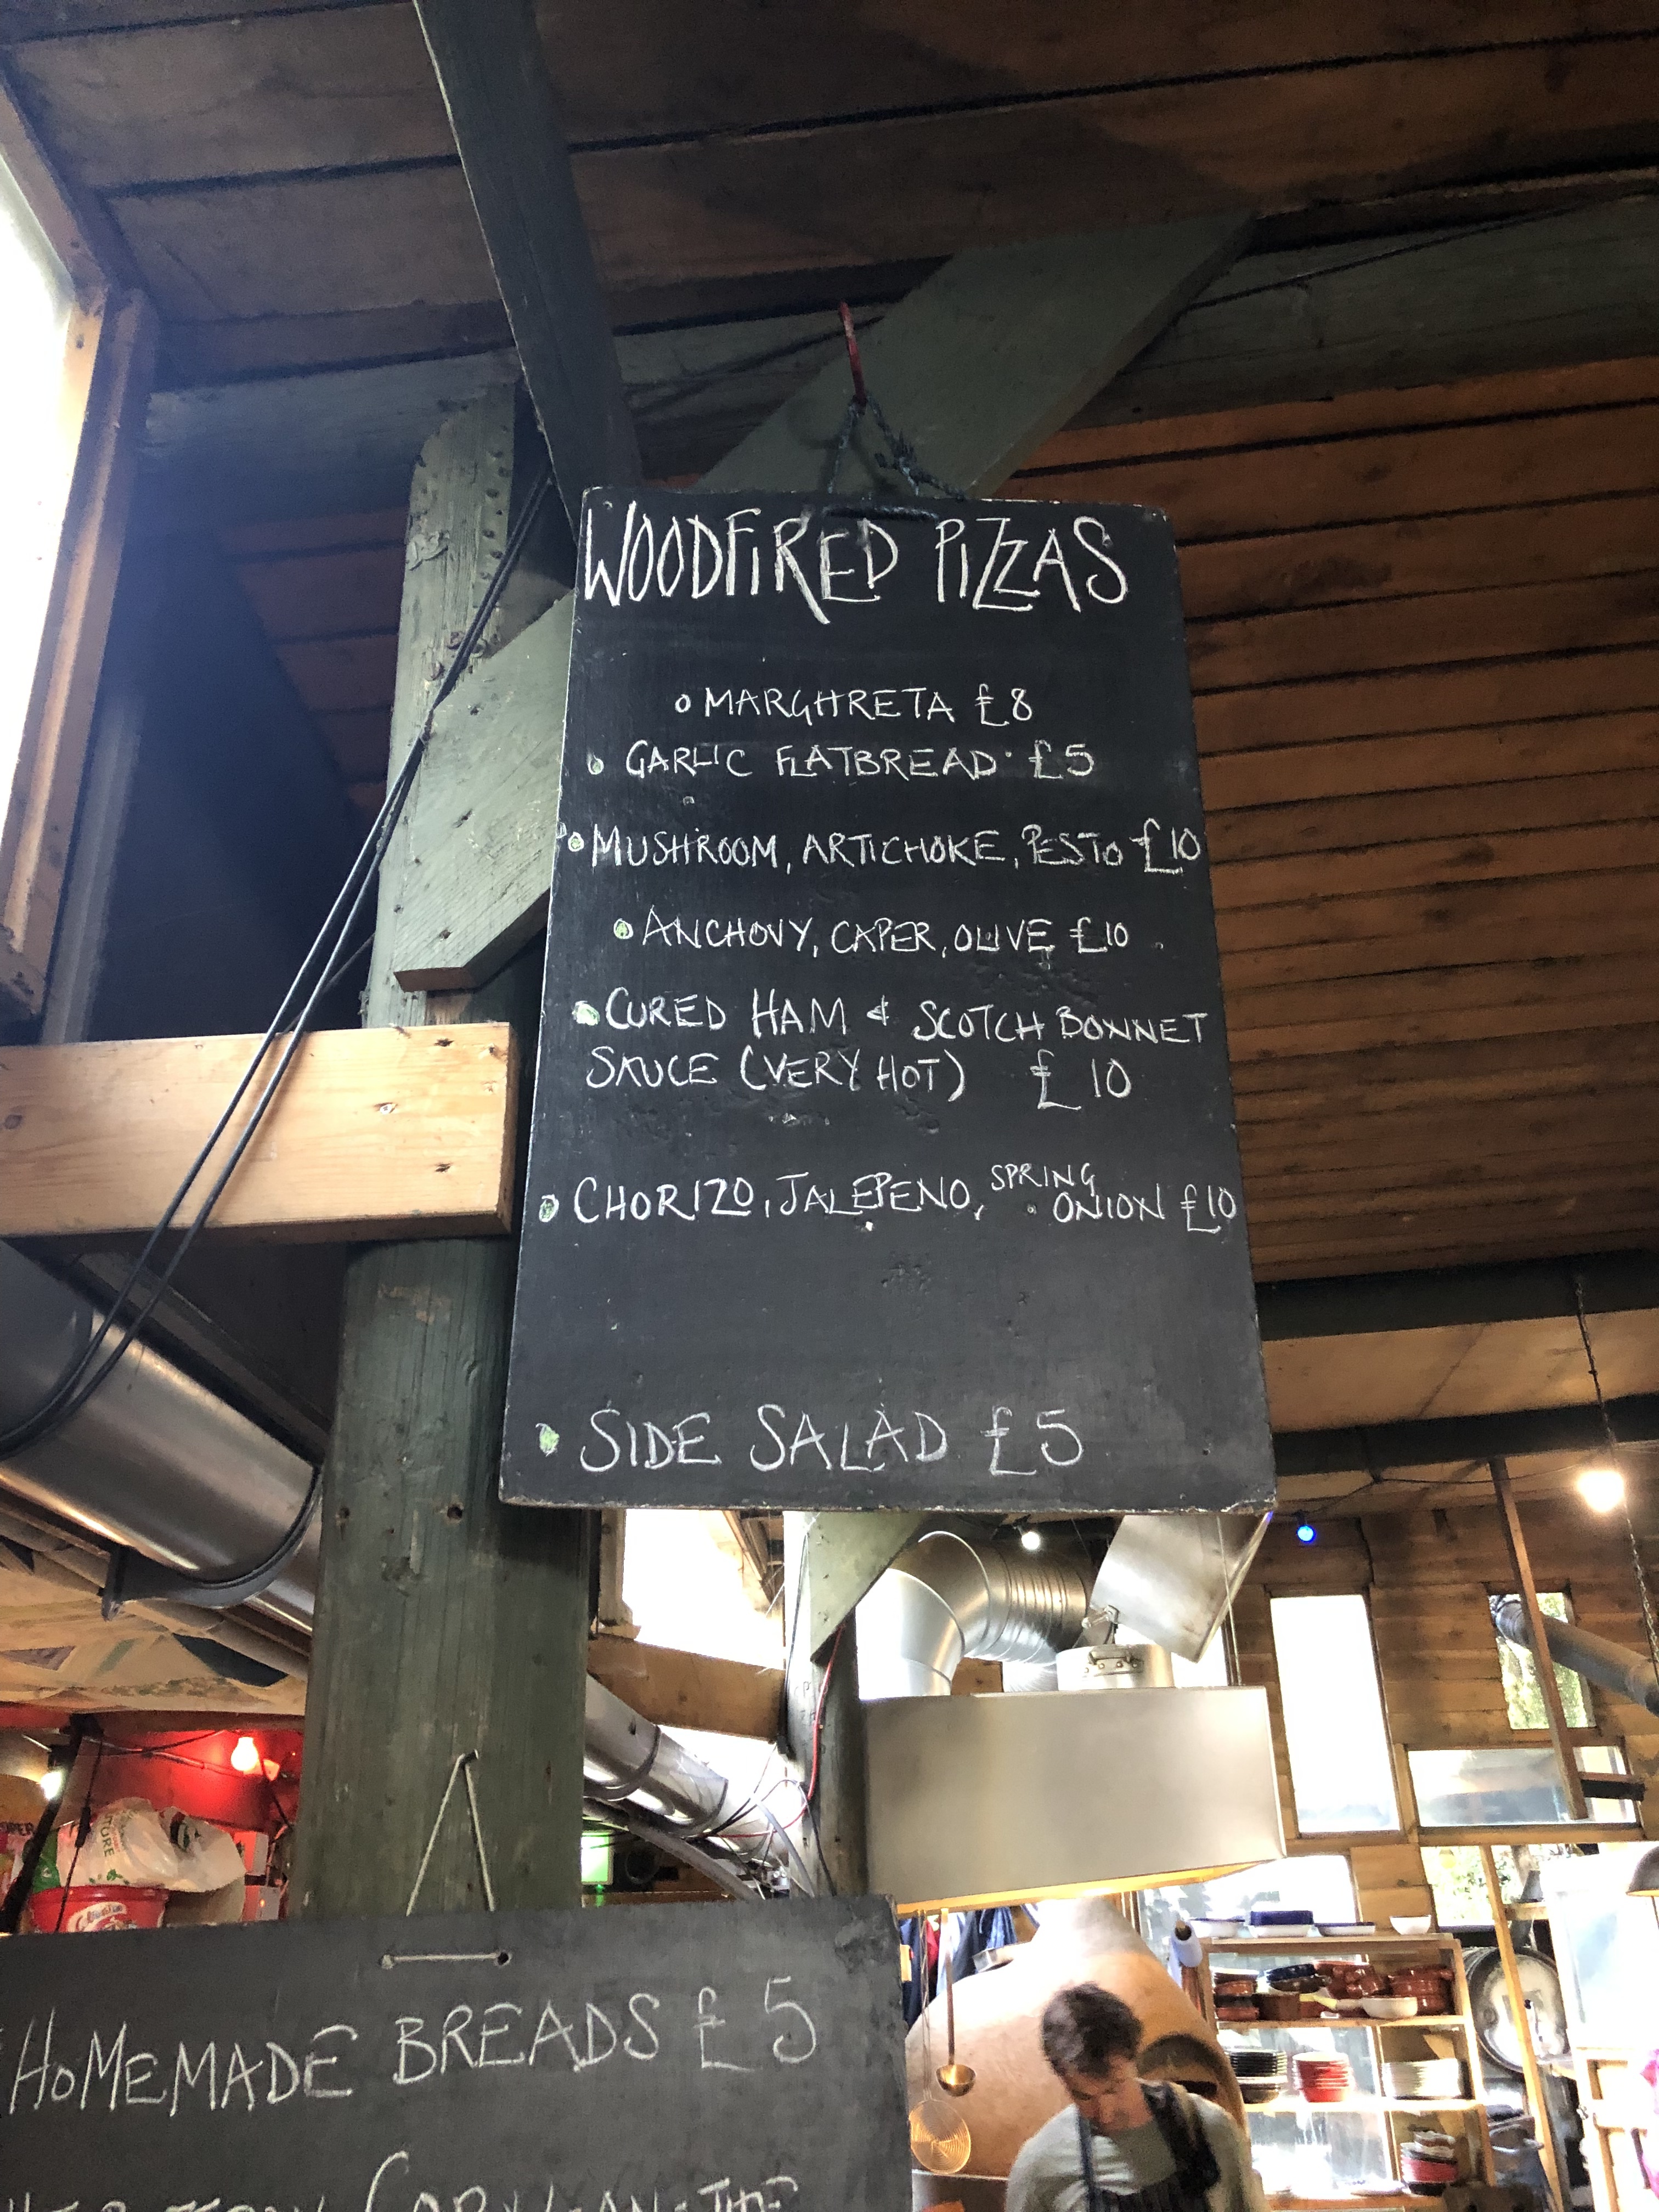 WOODFIRED PIZZAS
MARGHRETA £8
GARLIC FLATBREAD £5
MUSHROOM, ARTICHOKE, PESTO £10
ANCHOVY, CAPER, OLIVE £10
CURED HAM & SCOTCH BONNET
SAUCE (VERY HOT) £10
CHORIZO, JALEPENO, SPRING ONION £10
SIDE SALAD £5
HOMEMADE BREADS £5